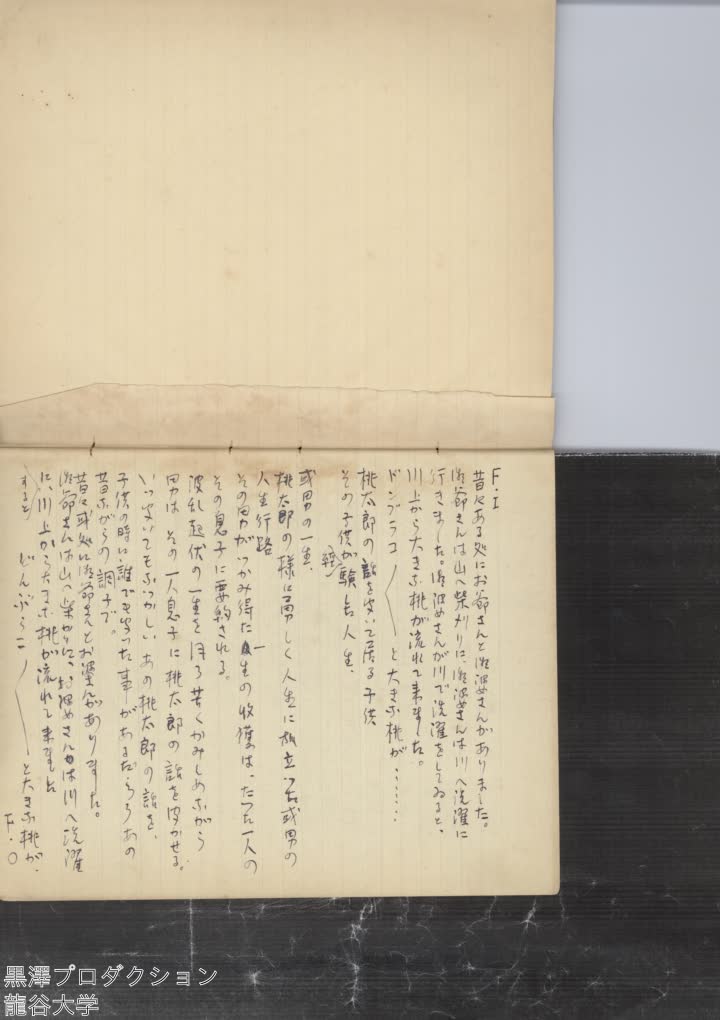 F・I
昔々ある処にお爺さんとお婆さんがありました。
お爺さんは山へ柴刈りに、お婆さんは川へ洗濯に
行きました。お婆さんが川で洗濯をしてゐると、
川上から大きな桃が流れて来ました。
ドンブラコ〳〵と大きな桃が……
桃太郎の話を聞いて居る子供
その子供が経験した人生、
或男の一生、
桃太郎の様に勇しく人生に旅立つた或男の
人生行路
その男がつかみ得た一生の收獲は、たつた一人の
その息子に要約される。
波乱起伏の一生をほろ苦くかみしめながら
男は その一人息子に桃太郎の話を聞かせる。
いつ聞いてもなつかしいあの桃太郎の話を、
子供の時に誰でも聞いた事があるだらうあの
昔ながらの調子で。
昔々或処にお爺さんとお婆さんがありました。
お爺さんは山へ柴かりに、お婆さんは川へ洗濯
に、川上から大きな桃が流れて来ました
すると どんぶらこ〳〵と大きな桃が、
F・O
黒澤プロダクション
龍谷大学